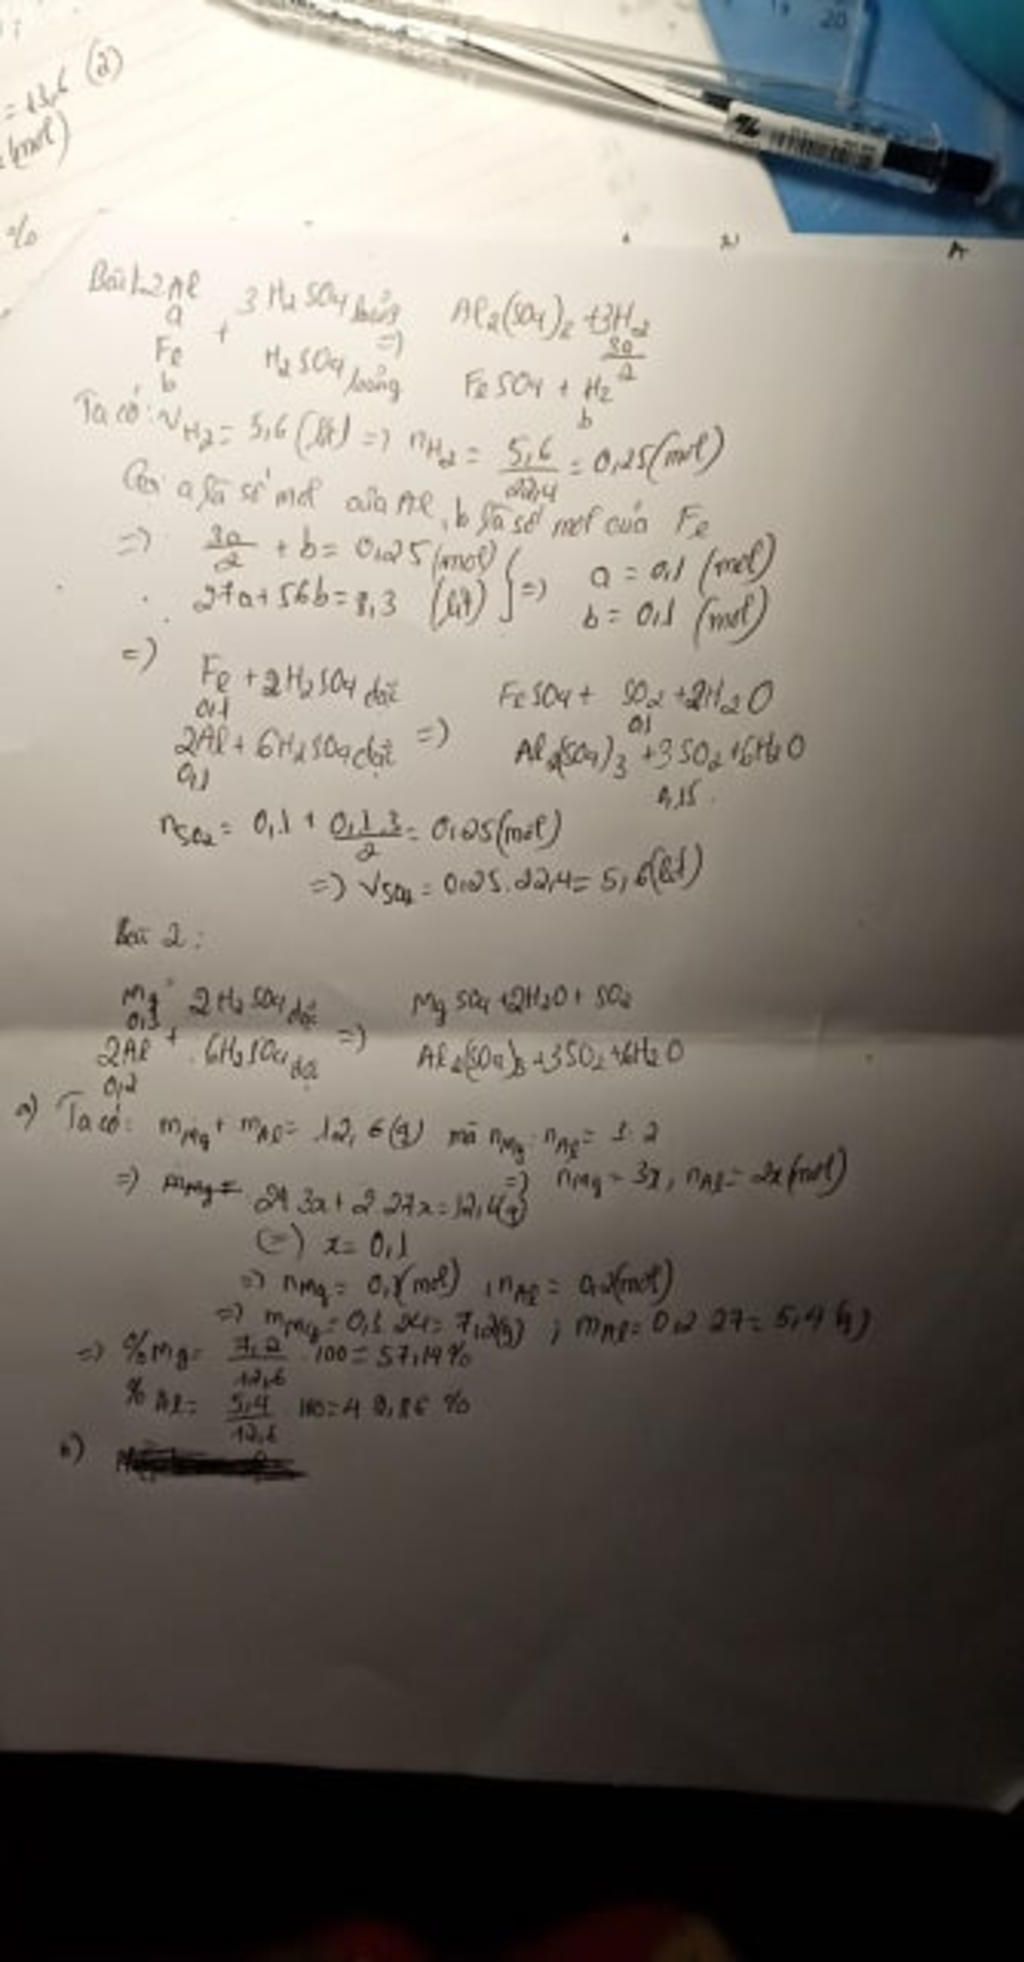 20
= 13,6 (2)
(mol)
%
Bài 1. 2Al + 3H2SO4 loãng => Al2(SO4)2 + 3H2
a 3a/2
Fe H2SO4 loãng FeSO4 + H2
b b
Ta có: VH2 = 5,6 (lít) => nH2 = 5,6/22,4 = 0,25 (mol)
Gọi a là số mol của Al, b là số mol của Fe
=> 3a/2 + b = 0,25 (mol)
27a + 56b = 8,3 (lít) } => a = 0,1 (mol)
b = 0,1 (mol)
=> Fe + 2H2SO4 đặc FeSO4 + SO2 + 2H2O
0,1 0,1
2Al + 6H2SO4 đặc => Al2(SO4)3 + 3SO2 + 6H2O
0,1 0,15
nSO2 = 0,1 + 0,1.3/2 = 0,25 (mol)
=> VSO2 = 0,25.22,4 = 5,6 (lít)
Bài 2:
Mg 2H2SO4 đặc MgSO4 + 2H2O + SO2
0,3
2Al + 6H2SO4 đặc => Al2(SO4)3 + 3SO2 + 6H2O
0,2
a) Ta có: mMg + mAl = 12,6 (g) mà nMg : nAl = 3:2
=> nMg = 3x, nAl = 2x (mol)
=> 24.3x + 2.27x = 12,6 (g)
(=) x = 0,1
=> nMg = 0,3 (mol), nAl = 0,2 (mol)
=> mMg = 0,3.24 = 7,2 (g); mAl = 0,2.27 = 5,4 (g)
=> %Mg = 7,2/12,6 .100 = 57,14%
%Al = 5,4/12,6 .100 = 42,86%
b)